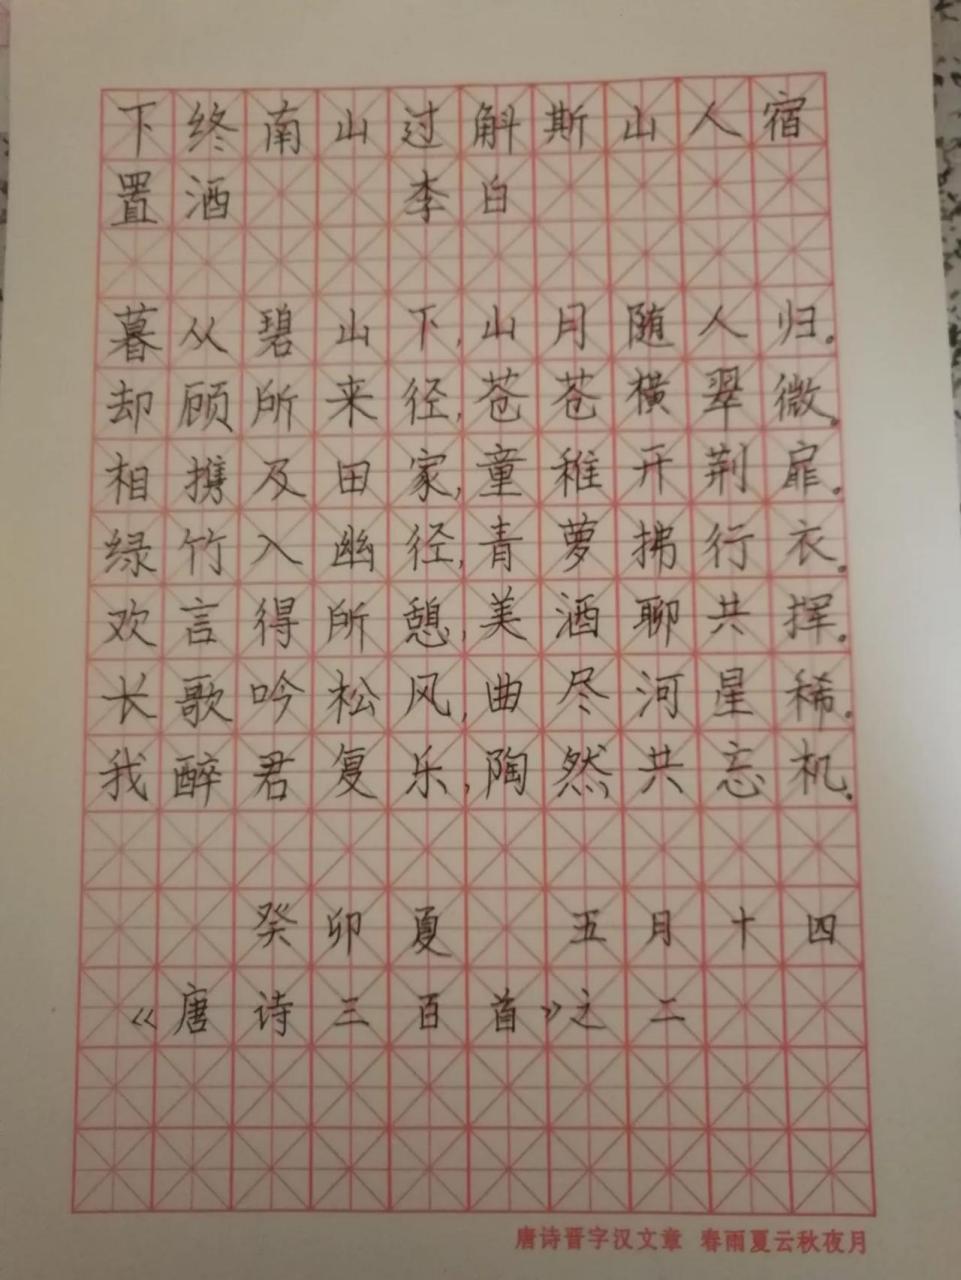 下终南山过斛斯山人宿
置酒 李白
暮从碧山下,山月随人归。
却顾所来径,苍苍横翠微。
相携及田家,童稚开荆扉。
绿竹入幽径,青萝拂行衣。
欢言得所憩,美酒聊共挥。
长歌吟松风,曲尽河星稀。
我醉君复乐,陶然共忘机。
癸卯夏 五月十四
《唐诗三百首》之二
唐诗晋字汉文章 春雨夏云秋夜月